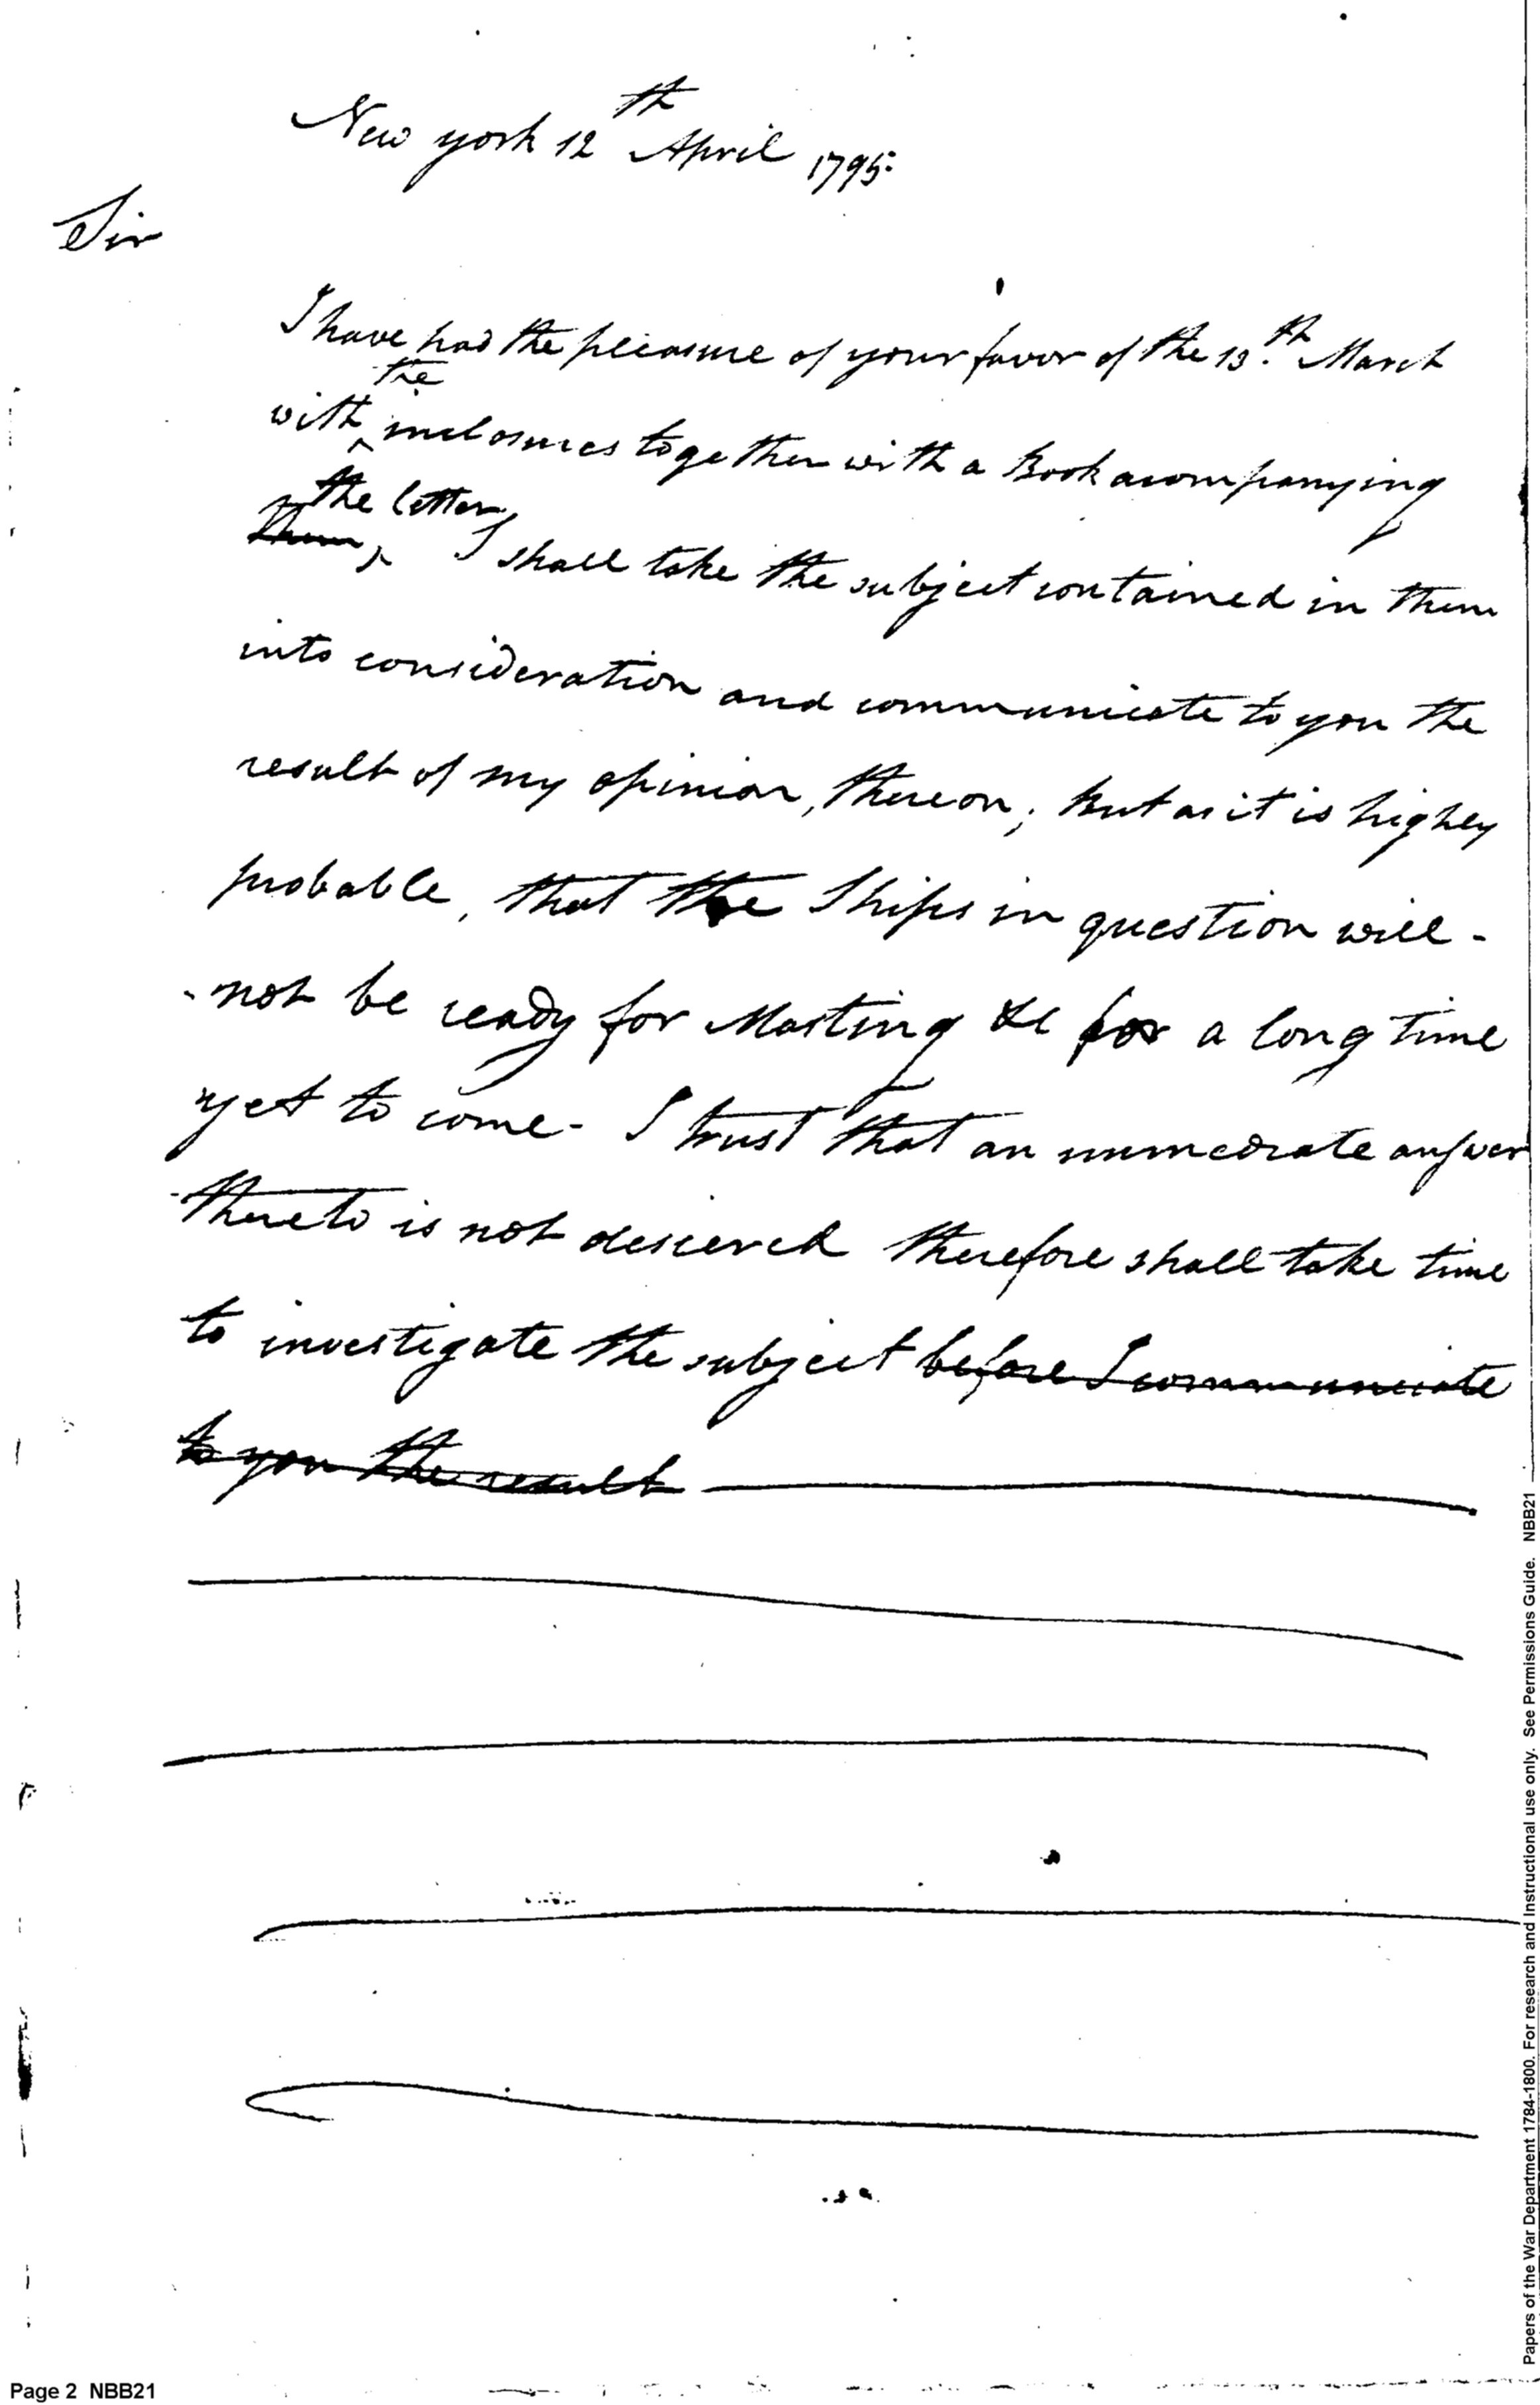 New york 12th April 1795.
Sir
I have had the pleasure of your favor of the 13.th March
the
with ^ inclosures together with a Book acompanying
the letter
them, ^ I shall take the subject contained in them
into consideration and communicate to you the
result of my opinion, thereon; But as it is highly
probable, that the Ships in question will -
- not be ready for Masting &c for a long time
yet to come - I trust that an immediate answer
thereto is not desiered therefore shall take time
to investigate the subject before I communicate
to you the result
Papers of the War Department 1784-1800. For research and Instructional use only. See Permissions Guide. NBB21
Page 2 NBB21